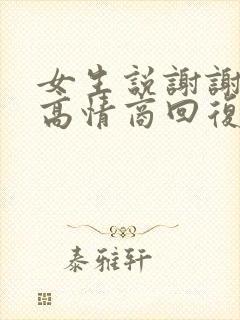 女生説謝謝
高情商回復
泰雅轩